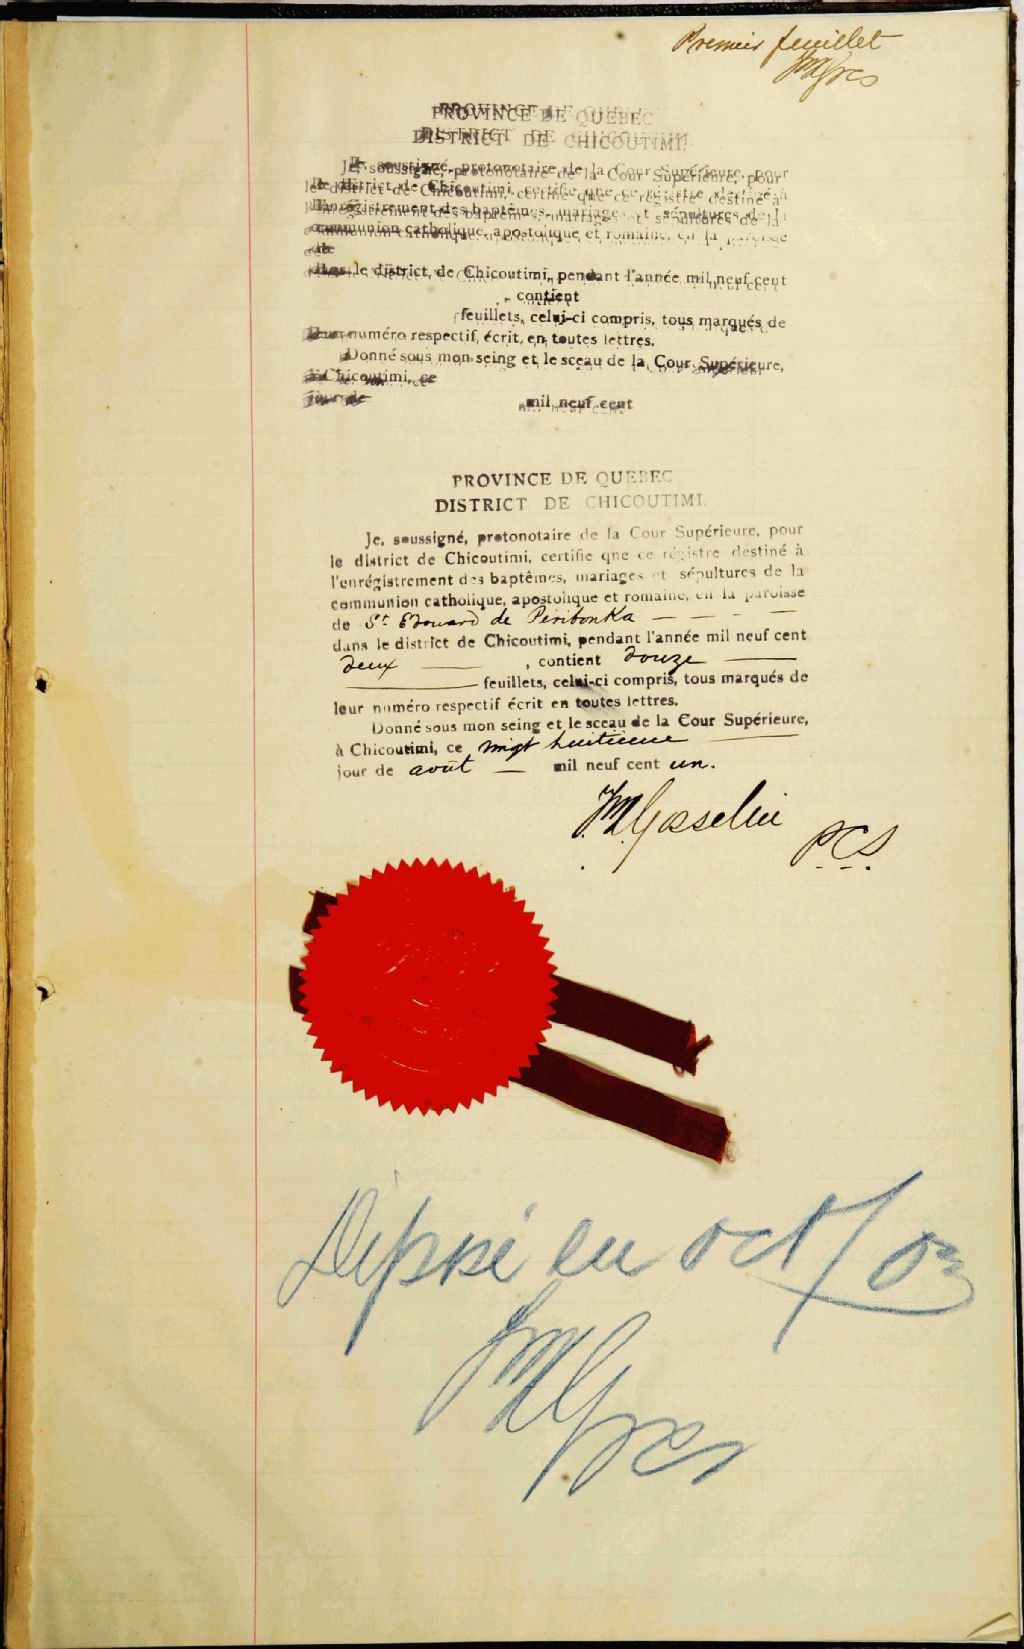 Premier feuillet
JMGpcs
PROVINCE DE QUEBEC
DISTRICT DE CHICOUTIMI.
Je, soussigné, protonotaire de la Cour Supérieure, pour
le district de Chicoutimi, certifie que ce régistre destiné à
l'enrégistrement des baptêmes, mariages et sépultures de la
communion catholique, apostolique et romaine, en la paroisse
de
dans le district de Chicoutimi, pendant l'année mil neuf cent
, contient
feuillets, celui-ci compris, tous marqués de
leur numéro respectif écrit en toutes lettres.
Donné sous mon seing et le sceau de la Cour Supérieure,
à Chicoutimi, ce
jour de mil neuf cent
PROVINCE DE QUEBEC
DISTRICT DE CHICOUTIMI.
Je, soussigné, protonotaire de la Cour Supérieure, pour
le district de Chicoutimi, certifie que ce régistre destiné à
l'enrégistrement des baptêmes, mariages et sépultures de la
communion catholique, apostolique et romaine, en la paroisse
de St Edouard de Péribonka — — - —
dans le district de Chicoutimi, pendant l'année mil neuf cent
deux — , contient douze —
— feuillets, celui-ci compris, tous marqués de
leur numéro respectif écrit en toutes lettres.
Donné sous mon seing et le sceau de la Cour Supérieure,
à Chicoutimi, ce vingt huitième —
jour de août — mil neuf cent un.
JMGosselin
P.C.S.
Déposé en oct/03
JMGpcs